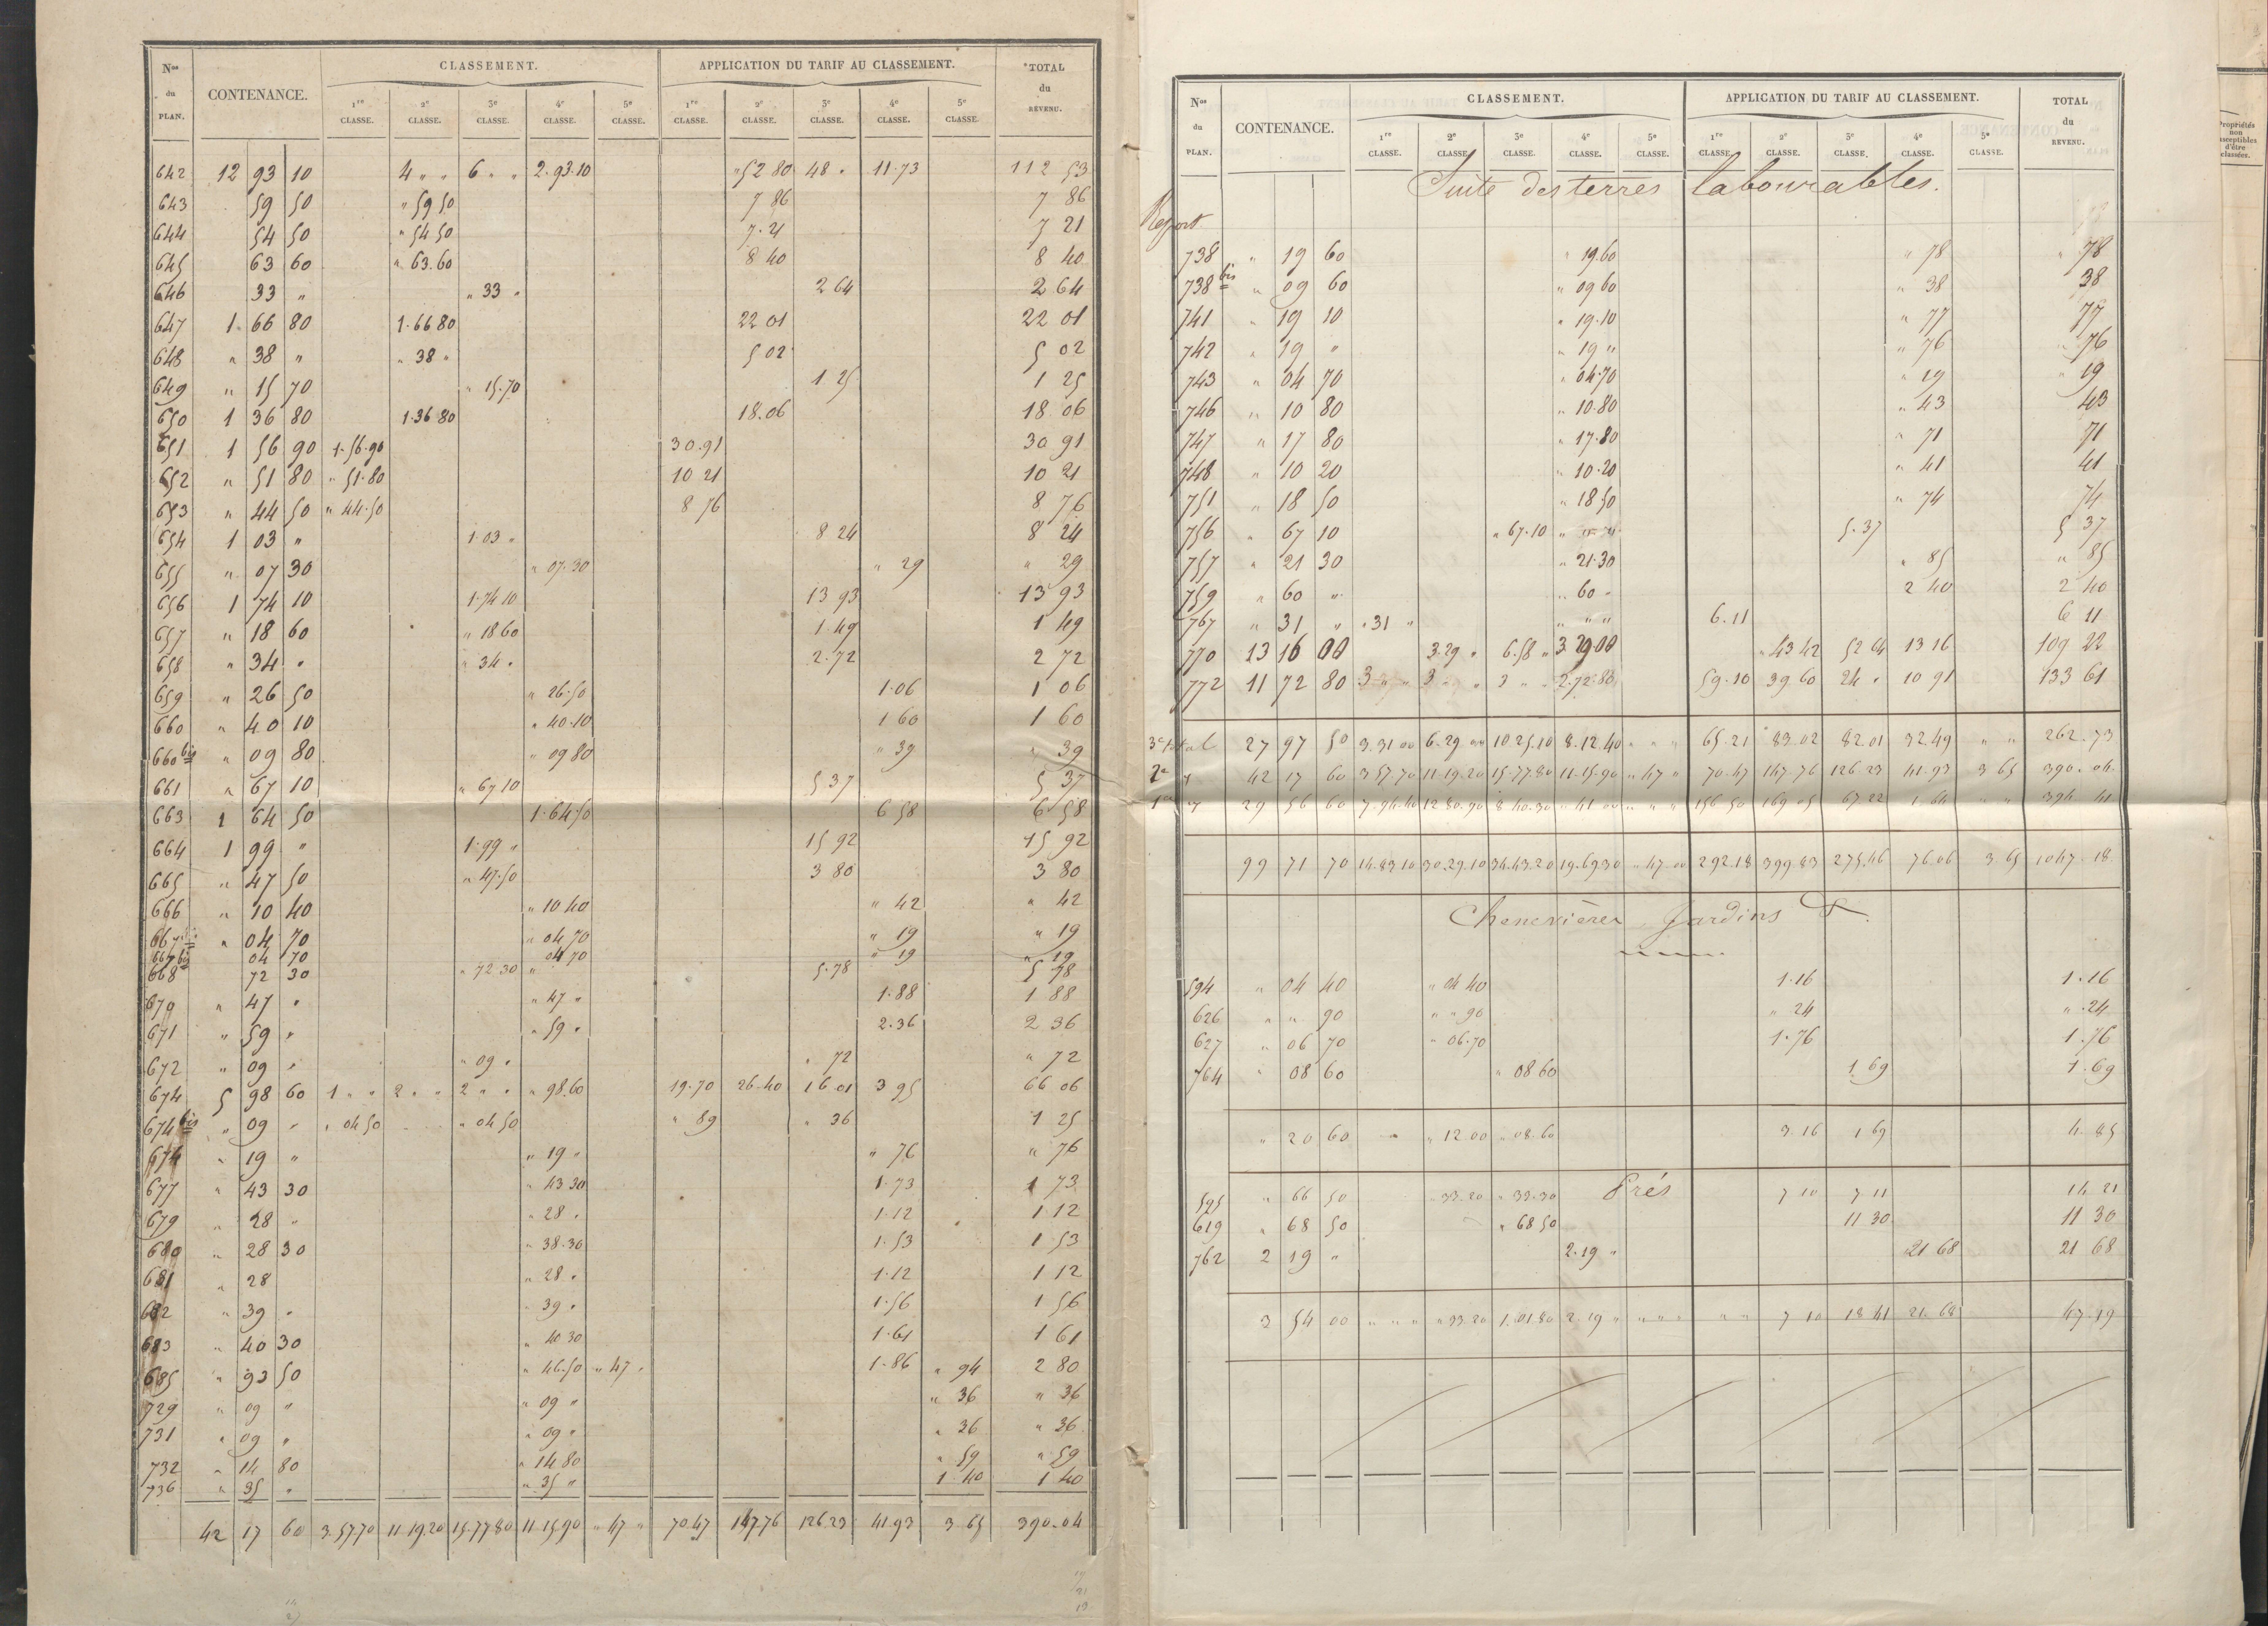 Nos du PLAN. CONTENANCE. CLASSEMENT. APPLICATION DU TARIF AU CLASSEMENT. TOTAL du REVENU.
1re CLASSE. 2e CLASSE. 3e CLASSE. 4e CLASSE. 5e CLASSE. 1re CLASSE. 2e CLASSE. 3e CLASSE. 4e CLASSE. 5e CLASSE.
642 12 93 10 4 „ „ 6 „ „ 2.93.10 „52 80 48 „ 11.73 112 53
643 59 50 „ 59 50 7 86 7 86
644 54 50 „ 54 50 7.21 7 21
645 63 60 „ 63.60 8 40 8 40
646 33 „ „ 33 „ 2 64 2 64
647 1 66 80 1.66 80 22 01 22 01
648 „ 38 „ „ 38 „ 5 02 5 02
649 „ 15 70 „ 15.70 1 25 1 25
650 1 36 80 1.36 80 18.06 18 06
651 1 56 90 1.56.90 30.91 30 91
652 „ 51 80 „ 51.80 10 21 10 21
653 „ 44 50 „ 44.50 8 76 8 76
654 1 03 „ 1.03 „ 8 24 8 24
655 „ 07 30 „ 07.30 „ 29 „ 29
656 1 74 10 1.74 10 13 93 13 93
657 „ 18 60 „ 18 60 1.49 1 49
658 „ 34 „ „ 34 „ 2.72 2 72
659 „ 26 50 „ 26.50 1.06 1 06
660 „ 40 10 „ 40.10 1 60 1 60
660 bis „ 09 80 „ 09 80 „ 39 „ 39
661 „ 67 10 „ 67 10 5 37 5 37
663 1 64 50 1.64.50 6 58 6 58
664 1 99 „ 1.99 „ 15 92 15 92
665 „ 47 50 „ 47.50 3 80 3 80
666 „ 10 40 „ 10 40 „ 42 „ 42
667 „ 04 70 „ 04 70 „ 19 „ 19
667 bis 04 70 04 70 „ 19 „ 19
668 72 30 „ 72.30 „ 5.78 5 78
670 „ 47 „ „ 47 „ 1.88 1 88
671 „ 59 „ „ 59 „ 2.36 2 36
672 „ 09 „ „ 09 „ „ 72 „ 72
674 5 98 60 1 „ „ 2 „ „ 2 „ „ „ 98.60 19.70 26.40 16.01 3 95 66 06
674 bis „ 09 „ „ 04 50 „ 04 50 „ 89 „ 36 1 25
676 „ 19 „ „ 19 „ „ 76 „ 76
677 „ 43 30 „ 43 30 1.73 1 73
679 „ 28 „ „ 28 „ 1.12 1 12
680 „ 28 30 „ 38.30 1.53 1 53
681 „ 28 „ 28 „ 1.12 1 12
682 „ 39 „ „ 39 „ 1.56 1 56
683 „ 40 30 „ 40 30 1.61 1 61
685 „ 93 50 „ 46.50 „ 47 „ 1.86 „ 94 2 80
729 „ 09 „ „ 09 „ „ 36 „ 36
731 „ 09 „ „ 09 „ „ 36 „ 36
732 „ 14 80 „ 14 80 „ 59 „ 59
736 „ 35 „ „ 35 „ 1 40 1 40
42 17 60 3.57.70 11.19.20 15.77.80 11.15.90 „ 47 „ 70.47 147.76 126.23 41.93 3 65 390.04
Nos du PLAN. CONTENANCE. CLASSEMENT. APPLICATION DU TARIF AU CLASSEMENT. TOTAL du REVENU.
1re CLASSE. 2e CLASSE. 3e CLASSE. 4e CLASSE. 5e CLASSE. 1re CLASSE. 2e CLASSE. 3e CLASSE. 4e CLASSE. 5e CLASSE.
Suite des terres labourables.
Report
738 „ 19 60 „ 19.60 „ 78 „ 78
738 bis „ 09 60 „ 09 60 „ 38 38
741 „ 19 10 „ 19.10 „ 77 77
742 „ 19 „ „ 19 „ „ 76 „ 76
743 „ 04 70 „ 04.70 „ 19 „ 19
746 „ 10 80 „ 10.80 „ 43 43
747 „ 17 80 „ 17.80 „ 71 71
748 „ 10 20 „ 10.20 „ 41 41
751 „ 18 50 „ 18 50 „ 74 74
756 „ 67 10 „ 67.10 „ 5.37 5 37
757 „ 21 30 „ 21.30 „ 85 „ 85
759 „ 60 „ „ 60 „ 2 40 2 40
767 „ 31 „ „ 31 „ „ „ „ 6.11 6 11
770 13 16 00 3.29 „ 6.58 „ 3.29.00 „43 42 52 64 13 16 109 22
772 11 72 80 3 „ „ 3 „ „ 3 „ „ 2.72.80 59.10 39 60 24 „ 10 91 133 61
3e total 27 97 50 3.31 00 6.29 00 10 25.10 8.12.40 „ „ „ 65.21 83.02 82.01 32.49 „ „ 262.73
2e „ 42 17 60 3 57.70 11.19.20 15.77.80 11.15.90 „ 47 „ 70.47 147.76 126 23 41.93 3 65 390.04
1er „ 29 56 60 7.94.40 12 80.90 8 40.30 „ 41 00 „ „ „ 156 50 169 05 67 22 1.64 „ „ 394 41
99 71 70 14.83 10 30.29.10 34.43.20 19.69 30 „ 47 00 292.18 399 83 275.46 76.06 3 65 1047.18
Chenevières Jardins &.
594 „ 04 40 „ 04 40 1.16 1.16
626 „ „ 90 „ „ 90 „ 24 „ .24
627 „ 06 70 „ 06.70 1.76 1.76
764 „ 08 60 „ 08 60 1 69 1.69
„ 20 60 „ 12.00 „ 08.60 3.16 1 69 4.85
Prés
595 „ 66 50 „ 33.20 „ 33.30 7 10 7 11 14 21
619 „ 68 50 „ 68 50 11 30 11 30
762 2 19 „ 2.19 „ 21 68 21 68
3 54 00 „ „ „ „ 33.20 1.01.80 2.19 „ „ „ „ „ „ 7 10 18 41 21 68 47.19
Propriétés
non
susceptibles
d'être
classées.